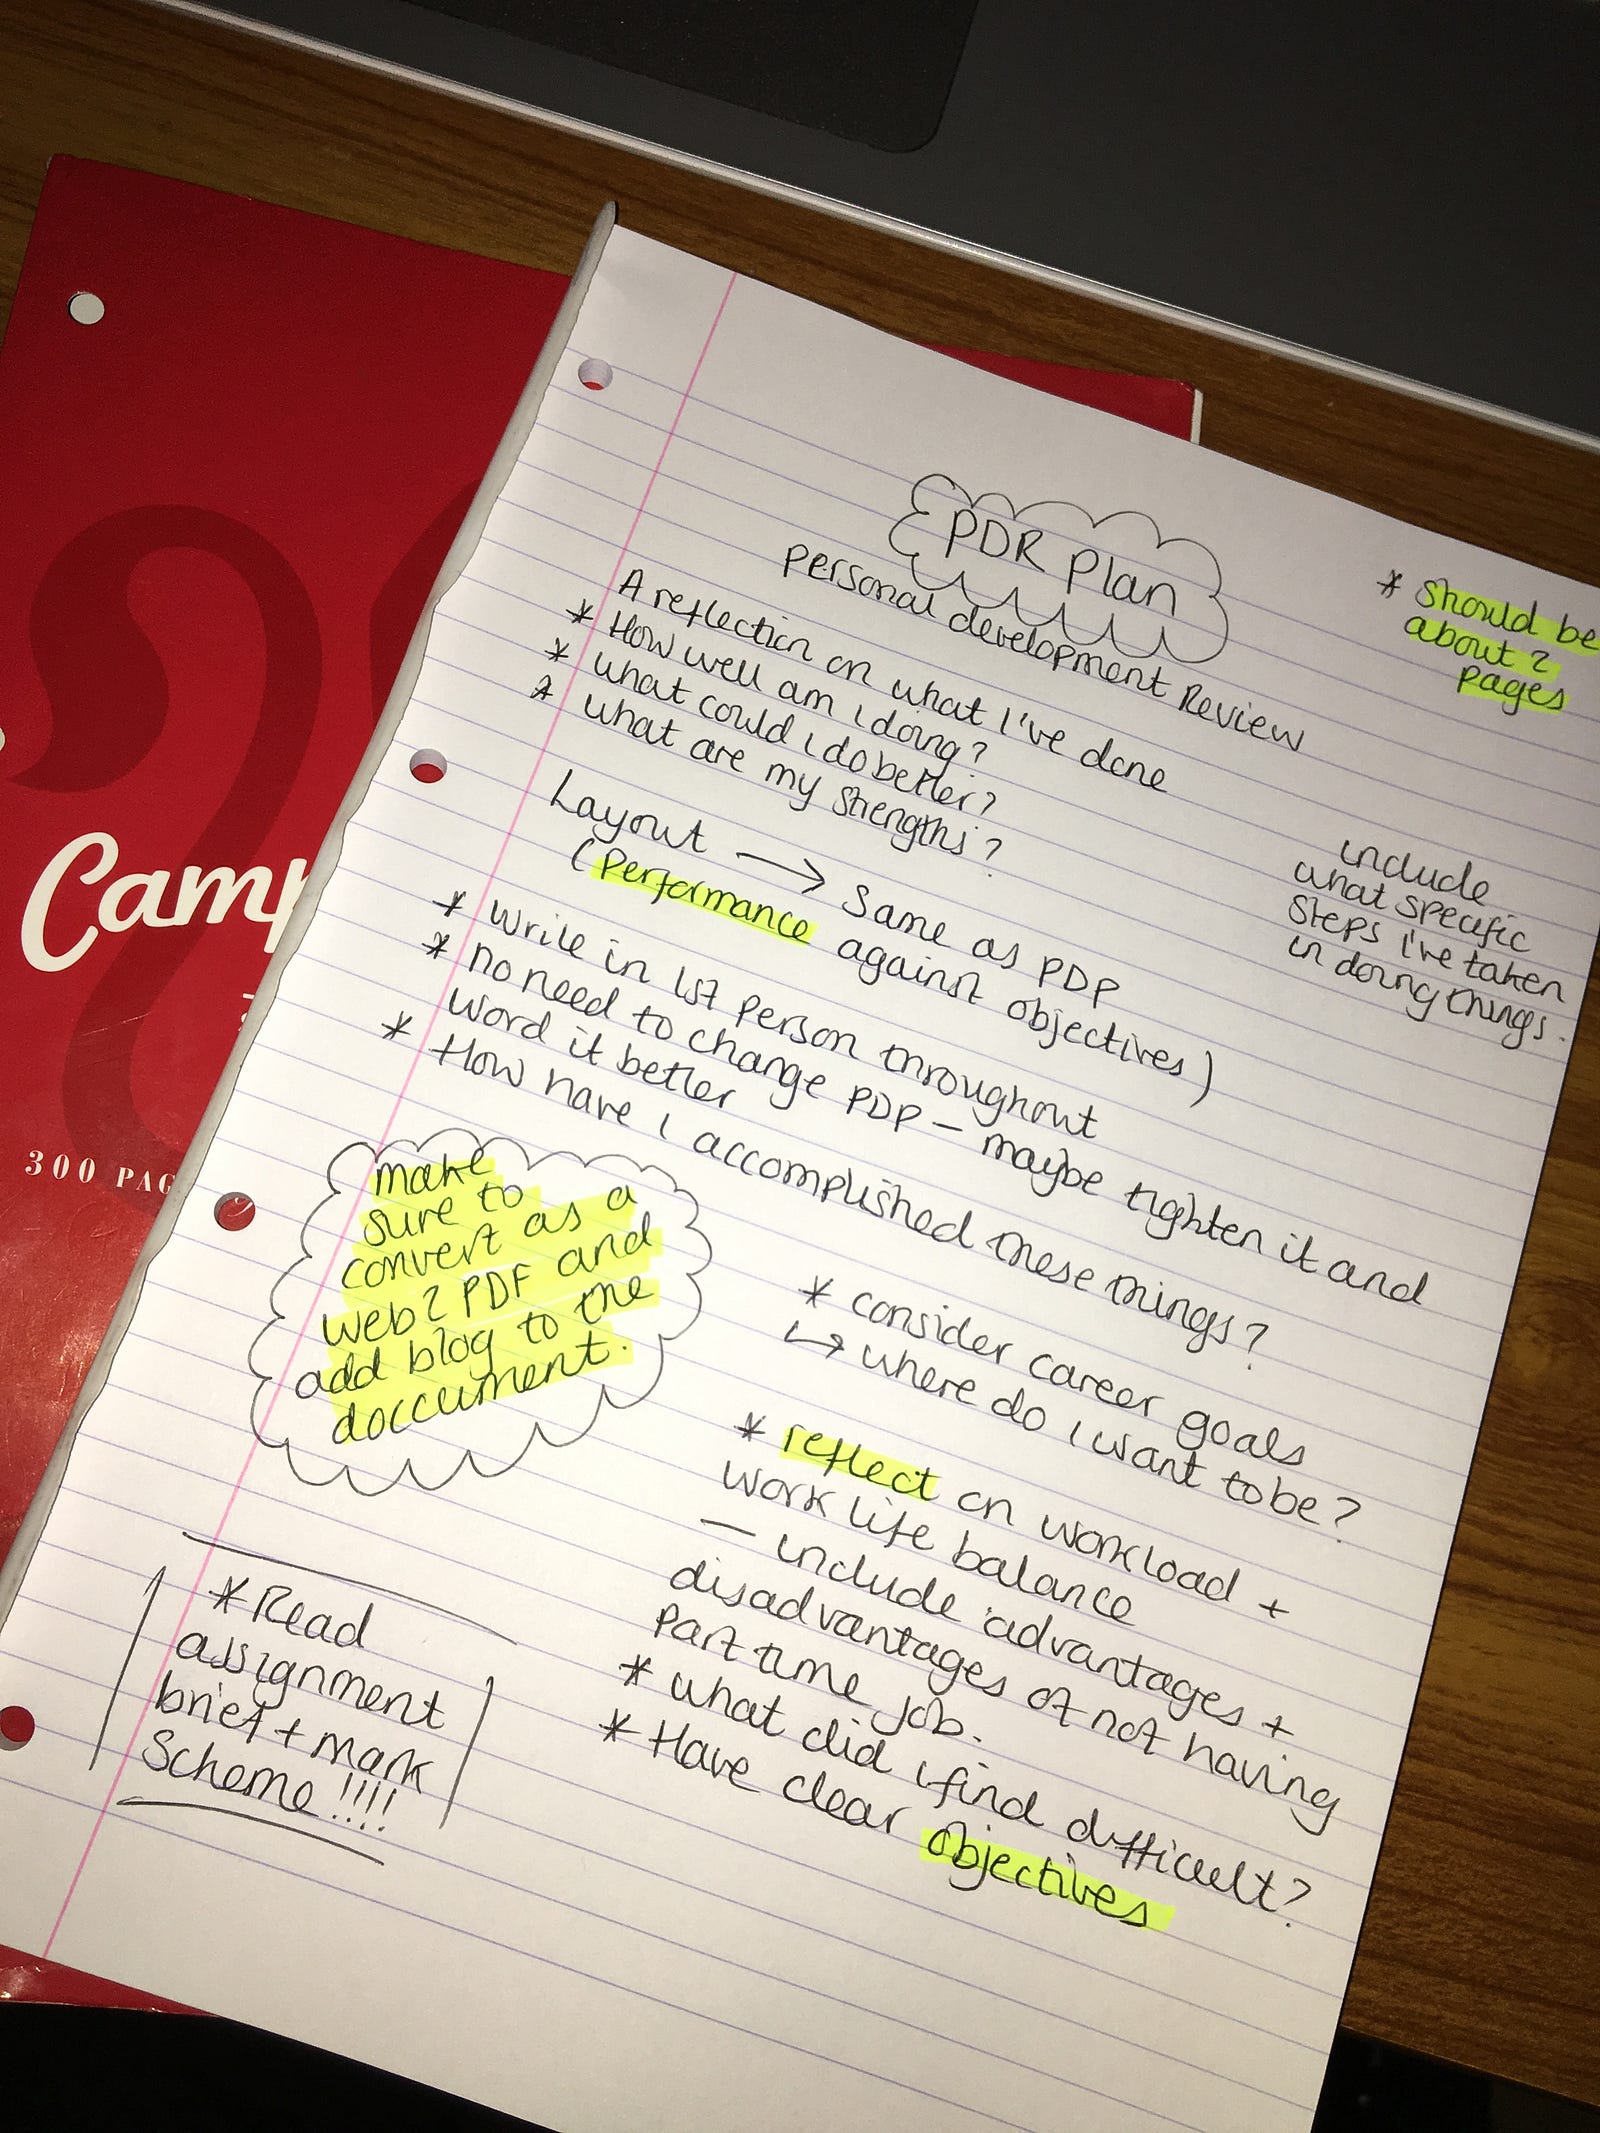 PDR Plan
Personal development Review
* Should be
about 2
pages
A reflection on what I've done
* How well am I doing?
* What could I do better?
* What are my strengths?
include
what specific
steps I've taken
in doing things.
Layout → Same as PDP
(Performance against objectives)
* Write in 1st person throughout
* no need to change PDP - maybe tighten it and
word it better
* How have I accomplished these things?
make
sure to
convert as a
web2 PDF and
add blog to the
doccument.
* consider career goals
↳ where do I want to be?
* reflect on workload +
work life balance
- include advantages +
disadvantages of not having
part time job.
* what did I find difficult?
* Have clear objectives
* Read
assignment
brief + mark
Scheme!!!!
Camp
300 PAG